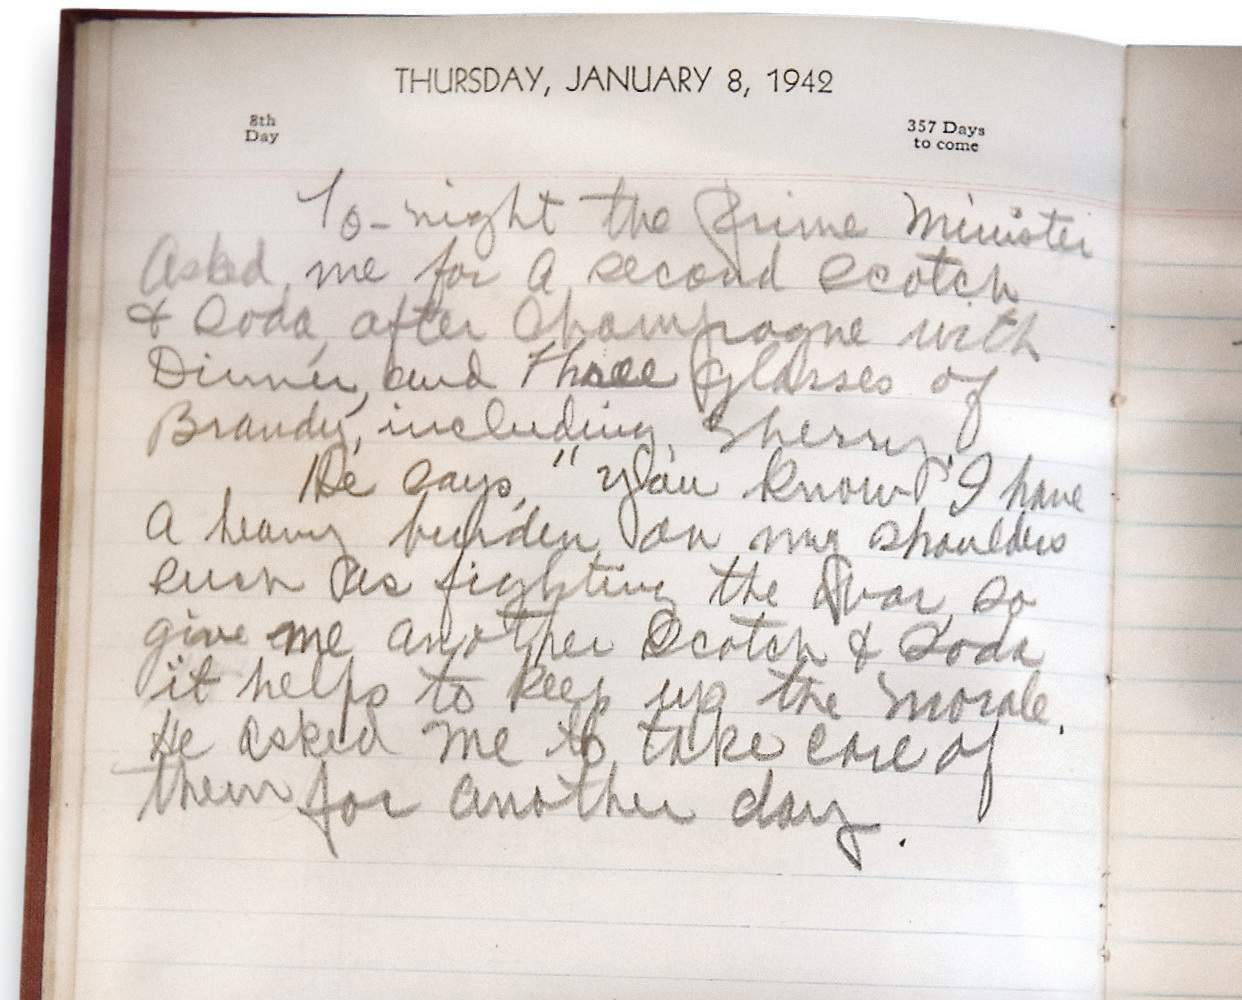 THURSDAY, JANUARY 8, 1942
8th
Day
357 Days
to come
To-night the Prime Minister
Asked me for a second Scotch
& Soda, after Champagne with
Dinner, and three glasses of
Brandy, including Sherry
He says, "you know, I have
A heavy burden on my shoulders
such as fighting the War, so
give me another Scotch & Soda
it helps to keep up the morale.
He asked me to take care of
them for another day.